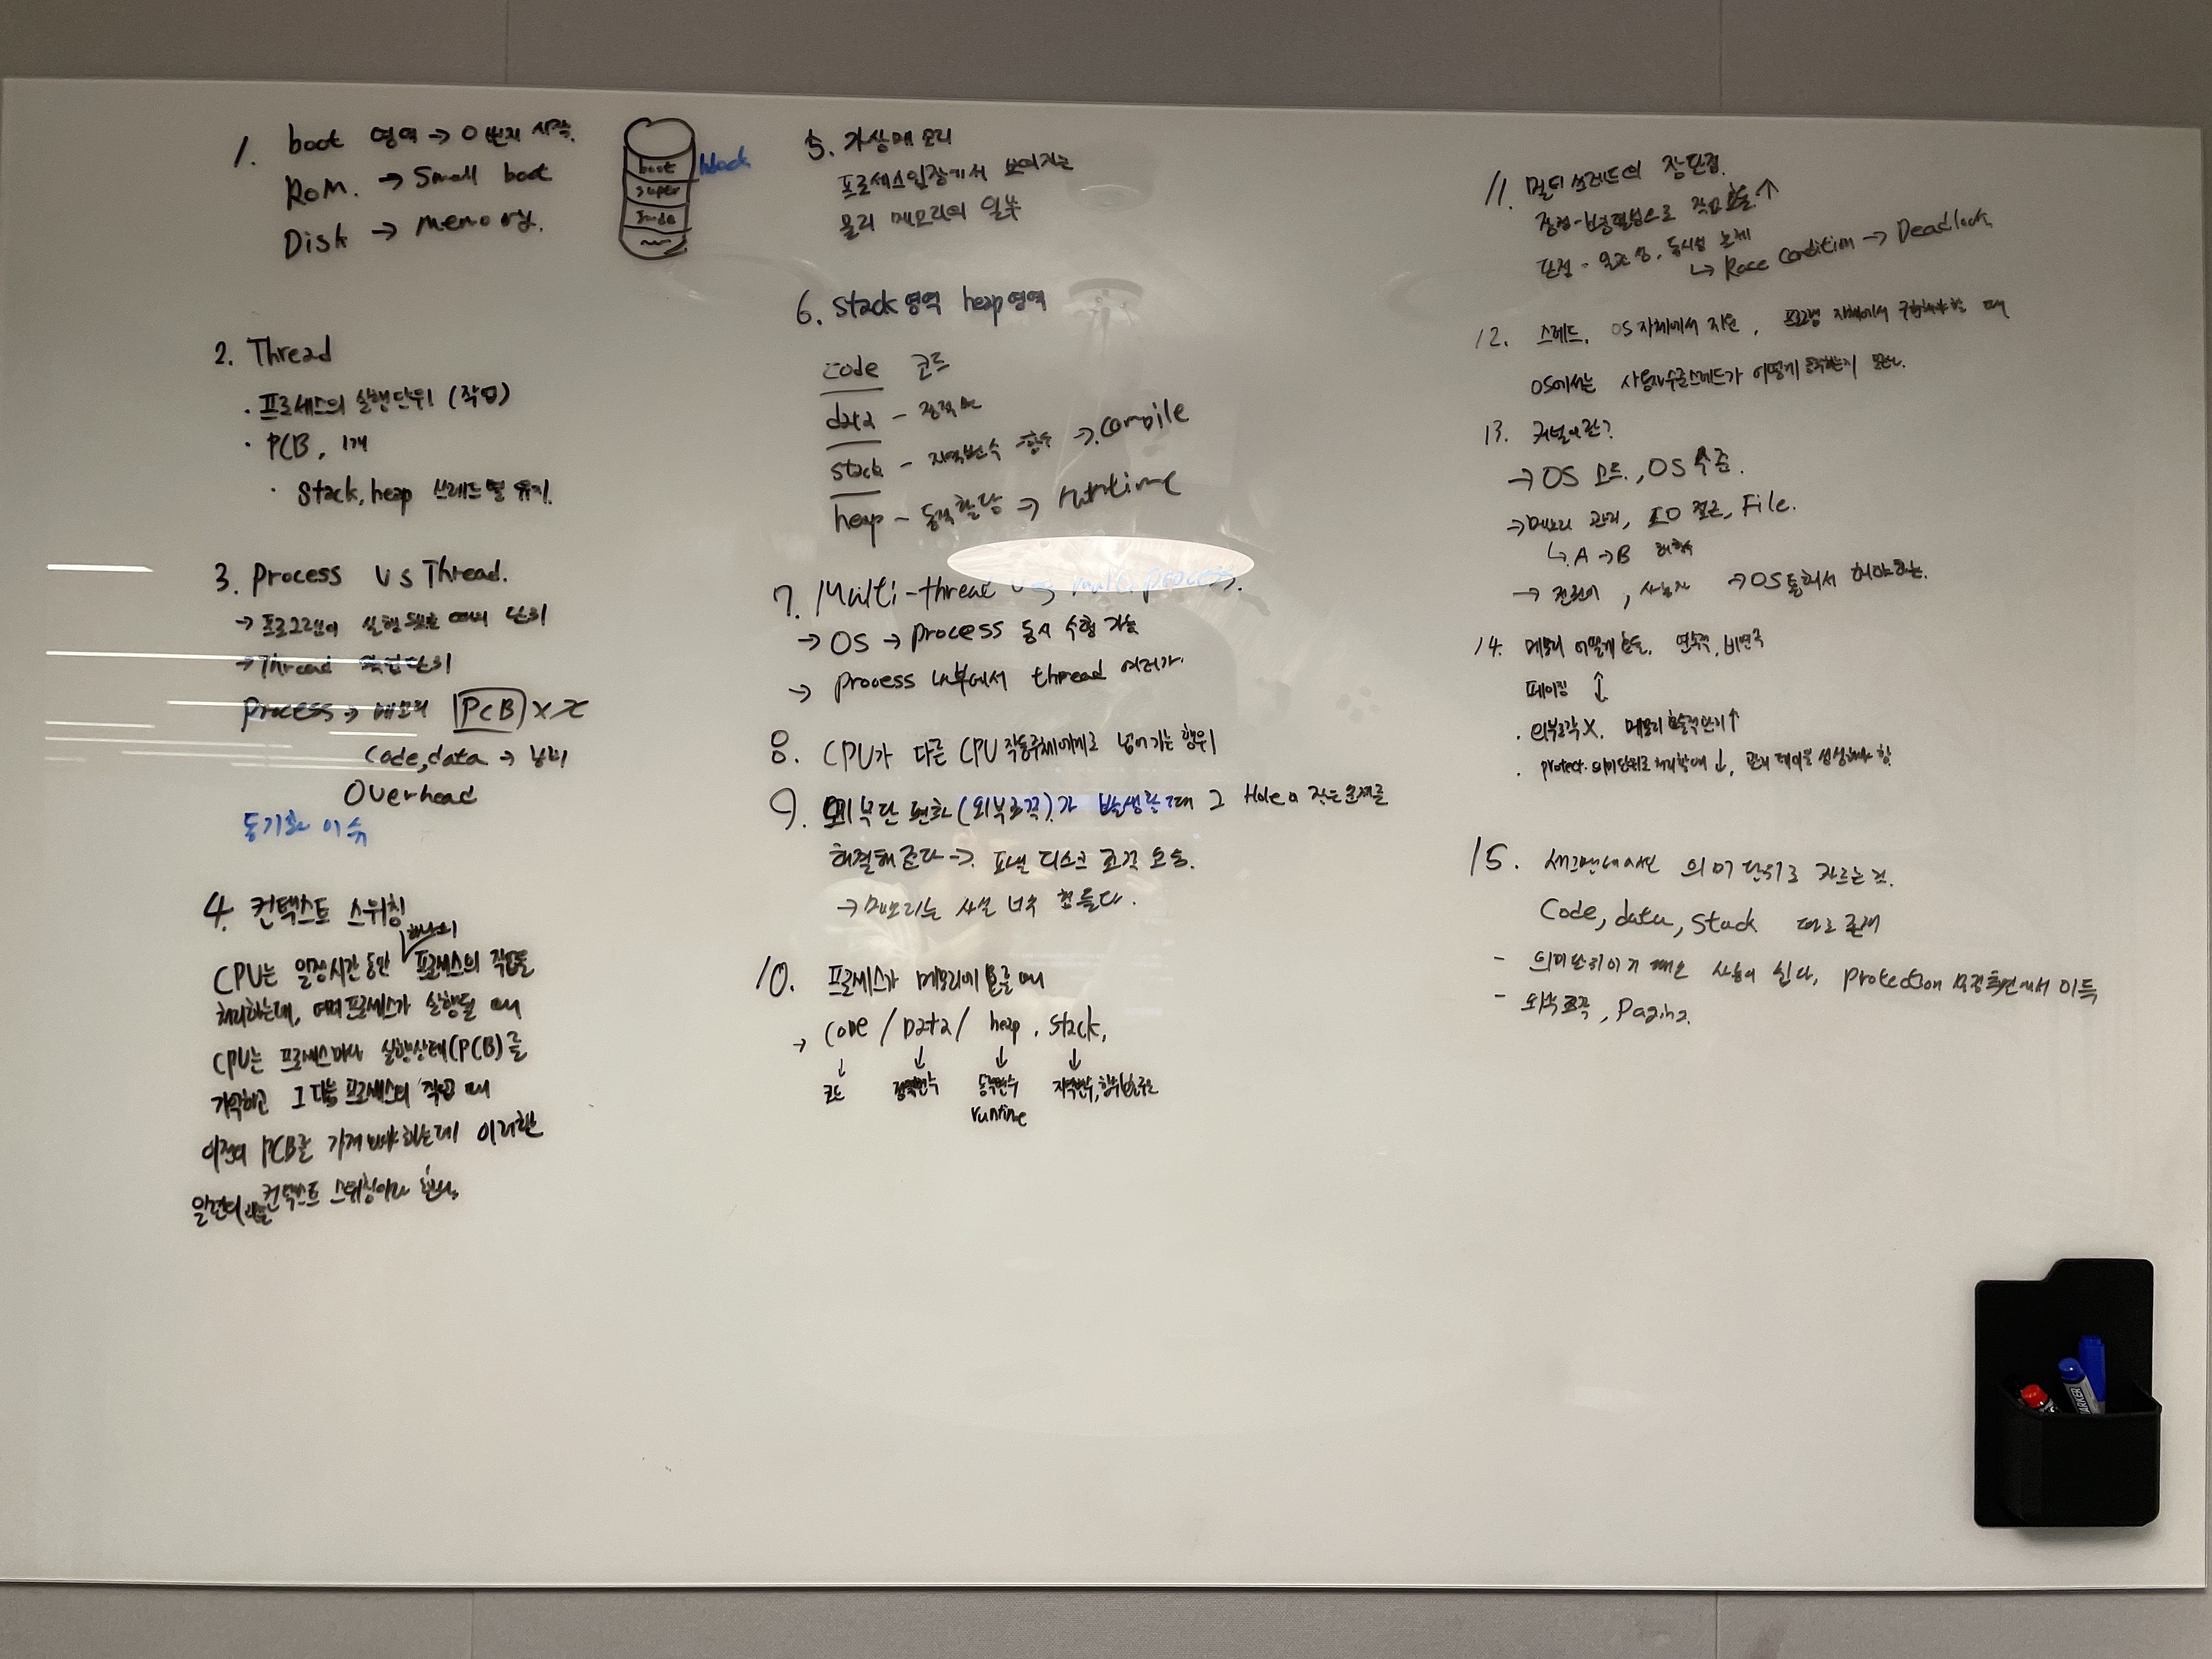 1. boot 영역 → 0번지 시작.
ROM. → Small boot
Disk → memory.
boot block
super
Inode
2. Thread
· 프로세스의 실행단위 (작업)
· PCB, 1개
· Stack, heap 쓰레드별 유지.
3. Process vs Thread.
→ 프로그램이 실행 단위
→ Thread 단위
Process → 메모리 PCB X
Code, data → 낭비
Overhead
동기화 이슈
4. 컨텍스트 스위칭
하나의
CPU는 일정시간 동안 프로세스의 작업을
처리하는데, 여러 프로세스가 실행될 때
CPU는 프로세스마다 실행상태(PCB)를
기억하고 그 다음 프로세스의 작업 때
이전의 PCB를 가져와야 하는데 이러한
컨텍스트 스위칭이라 한다.
5. 가상메모리
프로세스입장에서 보여지는
물리 메모리의 일부
6. Stack영역 heap영역
code 코드
data - 정적변수
stack - 지역변수 함수 → compile
heap - 동적할당 → runtime
7. Multi-thread vs multi process.
→ OS → process 동시 수행 가능
→ process 내부에서 thread 여러개.
8. CPU가 다른 CPU 작동주체에게로 넘어가는 행위
9. 외부단편화(외부조각)가 발생할 때 그 Hole이 작은 문제를
해결해 준다 → 디스크 조각 모음.
→ 메모리는 사실 너무 힘들다.
10. 프로세스가 메모리에 오를 때
→ Code / Data / heap, stack,
↓ ↓ ↓ ↓
코드 정적변수 동적변수 지역변수,
runtime
11. 멀티쓰레드의 장단점.
장점 - 병렬성으로 작업 효율 ↑
단점 - 일관성, 동시성 문제
↳ Race Condition → Deadlock
12. 스레드. OS 자체에서 지원, 프로그램 자체에서 구현해야 할 때
OS에서는 사용자수준스레드가 어떻게 동작하는지 모른다.
13. 커널이란?
→ OS 코드, OS 수준.
→ 메모리 관리, IO 접근, File.
↳ A → B
→ , 사용자 → OS 통해서 해야하는.
14. 메모리 어떻게 연속적, 비연속
페이징 ↕
· 외부조각X, 메모리 효율적 관리↑
· protect. 의미단위로 처리할 때 ↓, 관리 테이블 생성해야 함
15. 세그먼테이션 의미 단위로 자르는 것.
Code, data, Stack 따로 존재
- 의미단위이기 때문 사용이 쉽다, Protection 측면에서 이득
- 외부조각, Paging.